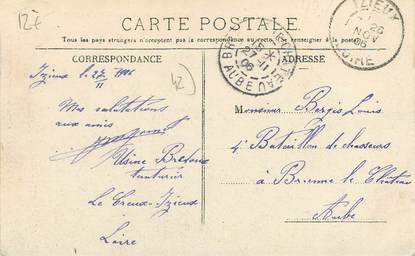 12F
CARTE POSTALE
Tous les pays étrangers n'acceptent pas la correspondance au recto, se renseigner à la poste
CORRESPONDANCE
ADRESSE
IZIEUX
26
NOV
06
LOIRE
27-11
06
AUBE
42
Izieux l. 27/11 1906
Mes salutations
aux amis
Usine
teinturier
Le Creux-Izieux
Loire
Monsieur Bergis Louis
4e Bataillon de chasseurs
à Brienne le Château
Aube